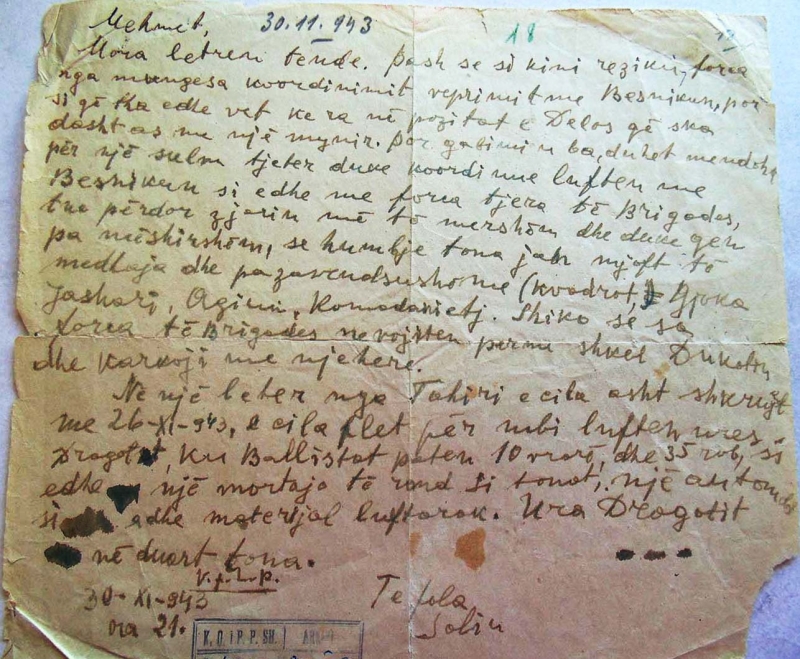 Mehmet, 30.11.943 18
Mora letren tende. pash se si kini rezikuj forca
nga mungesa koordinimit veprimit me Besnikun, por
si që tha edhe vet ke ra në pozitat e Delos që ska
dasht as me një mynir. Por gabimi u ba, duhet mendohe
për një sulm tjeter duke koordinue luften me
Besnikun si edhe me forca tjera të Brigades,
tue përdor zjarin më të mershëm dhe duke qen
pa mëshirshëm, se humbje tona jan mjaft të
mëdhaja dhe pazavendsushme (kuadrot,) Gjoka
Jashari, Agimi, Komodari etj. Shiko se sa
forca të Brigades nevojiten për me shkel Dukatin
dhe karkoji me njehere.
Ne një leter nga Tahiri e cila asht shkrujt
me 26-XI-943, e cila flet për mbi luften ures
Dragotit, ku Ballistat paten 10 vrarë, dhe 35 rob, si
edhe një mortaja të rand si tonat, një automobil
si edhe materjal luftarak. Ura Dragotit
në duart tona.
V.F.L.P.
30-XI-943
ora 21.
Te fala
K. Q. i P. P. SH.